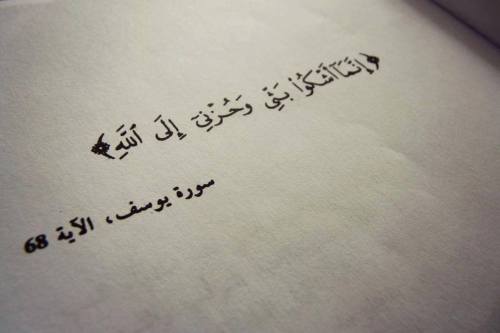 ﴿إِنَّمَآ أَشْكُوا۟ بَثِّى وَحُزْنِىٓ إِلَى ٱللَّهِ﴾
سورة يوسف، الآية 68